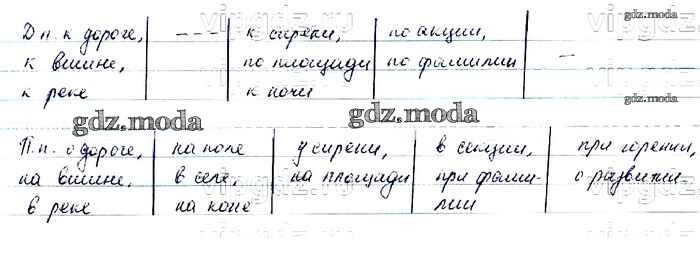 Д п. к дороге, | --- | к сирени, | по акции, | –
к вишне, по площади по фамилии
к реке к ночи
gdz.moda gdz.moda
П.п. о дороге, | на поле | у сирени, | в секции, | при горении,
на вишне, в селе, на площади при фами- о развитии
в реке на коне лии
gdz.moda
gdz.moda
gdz.moda